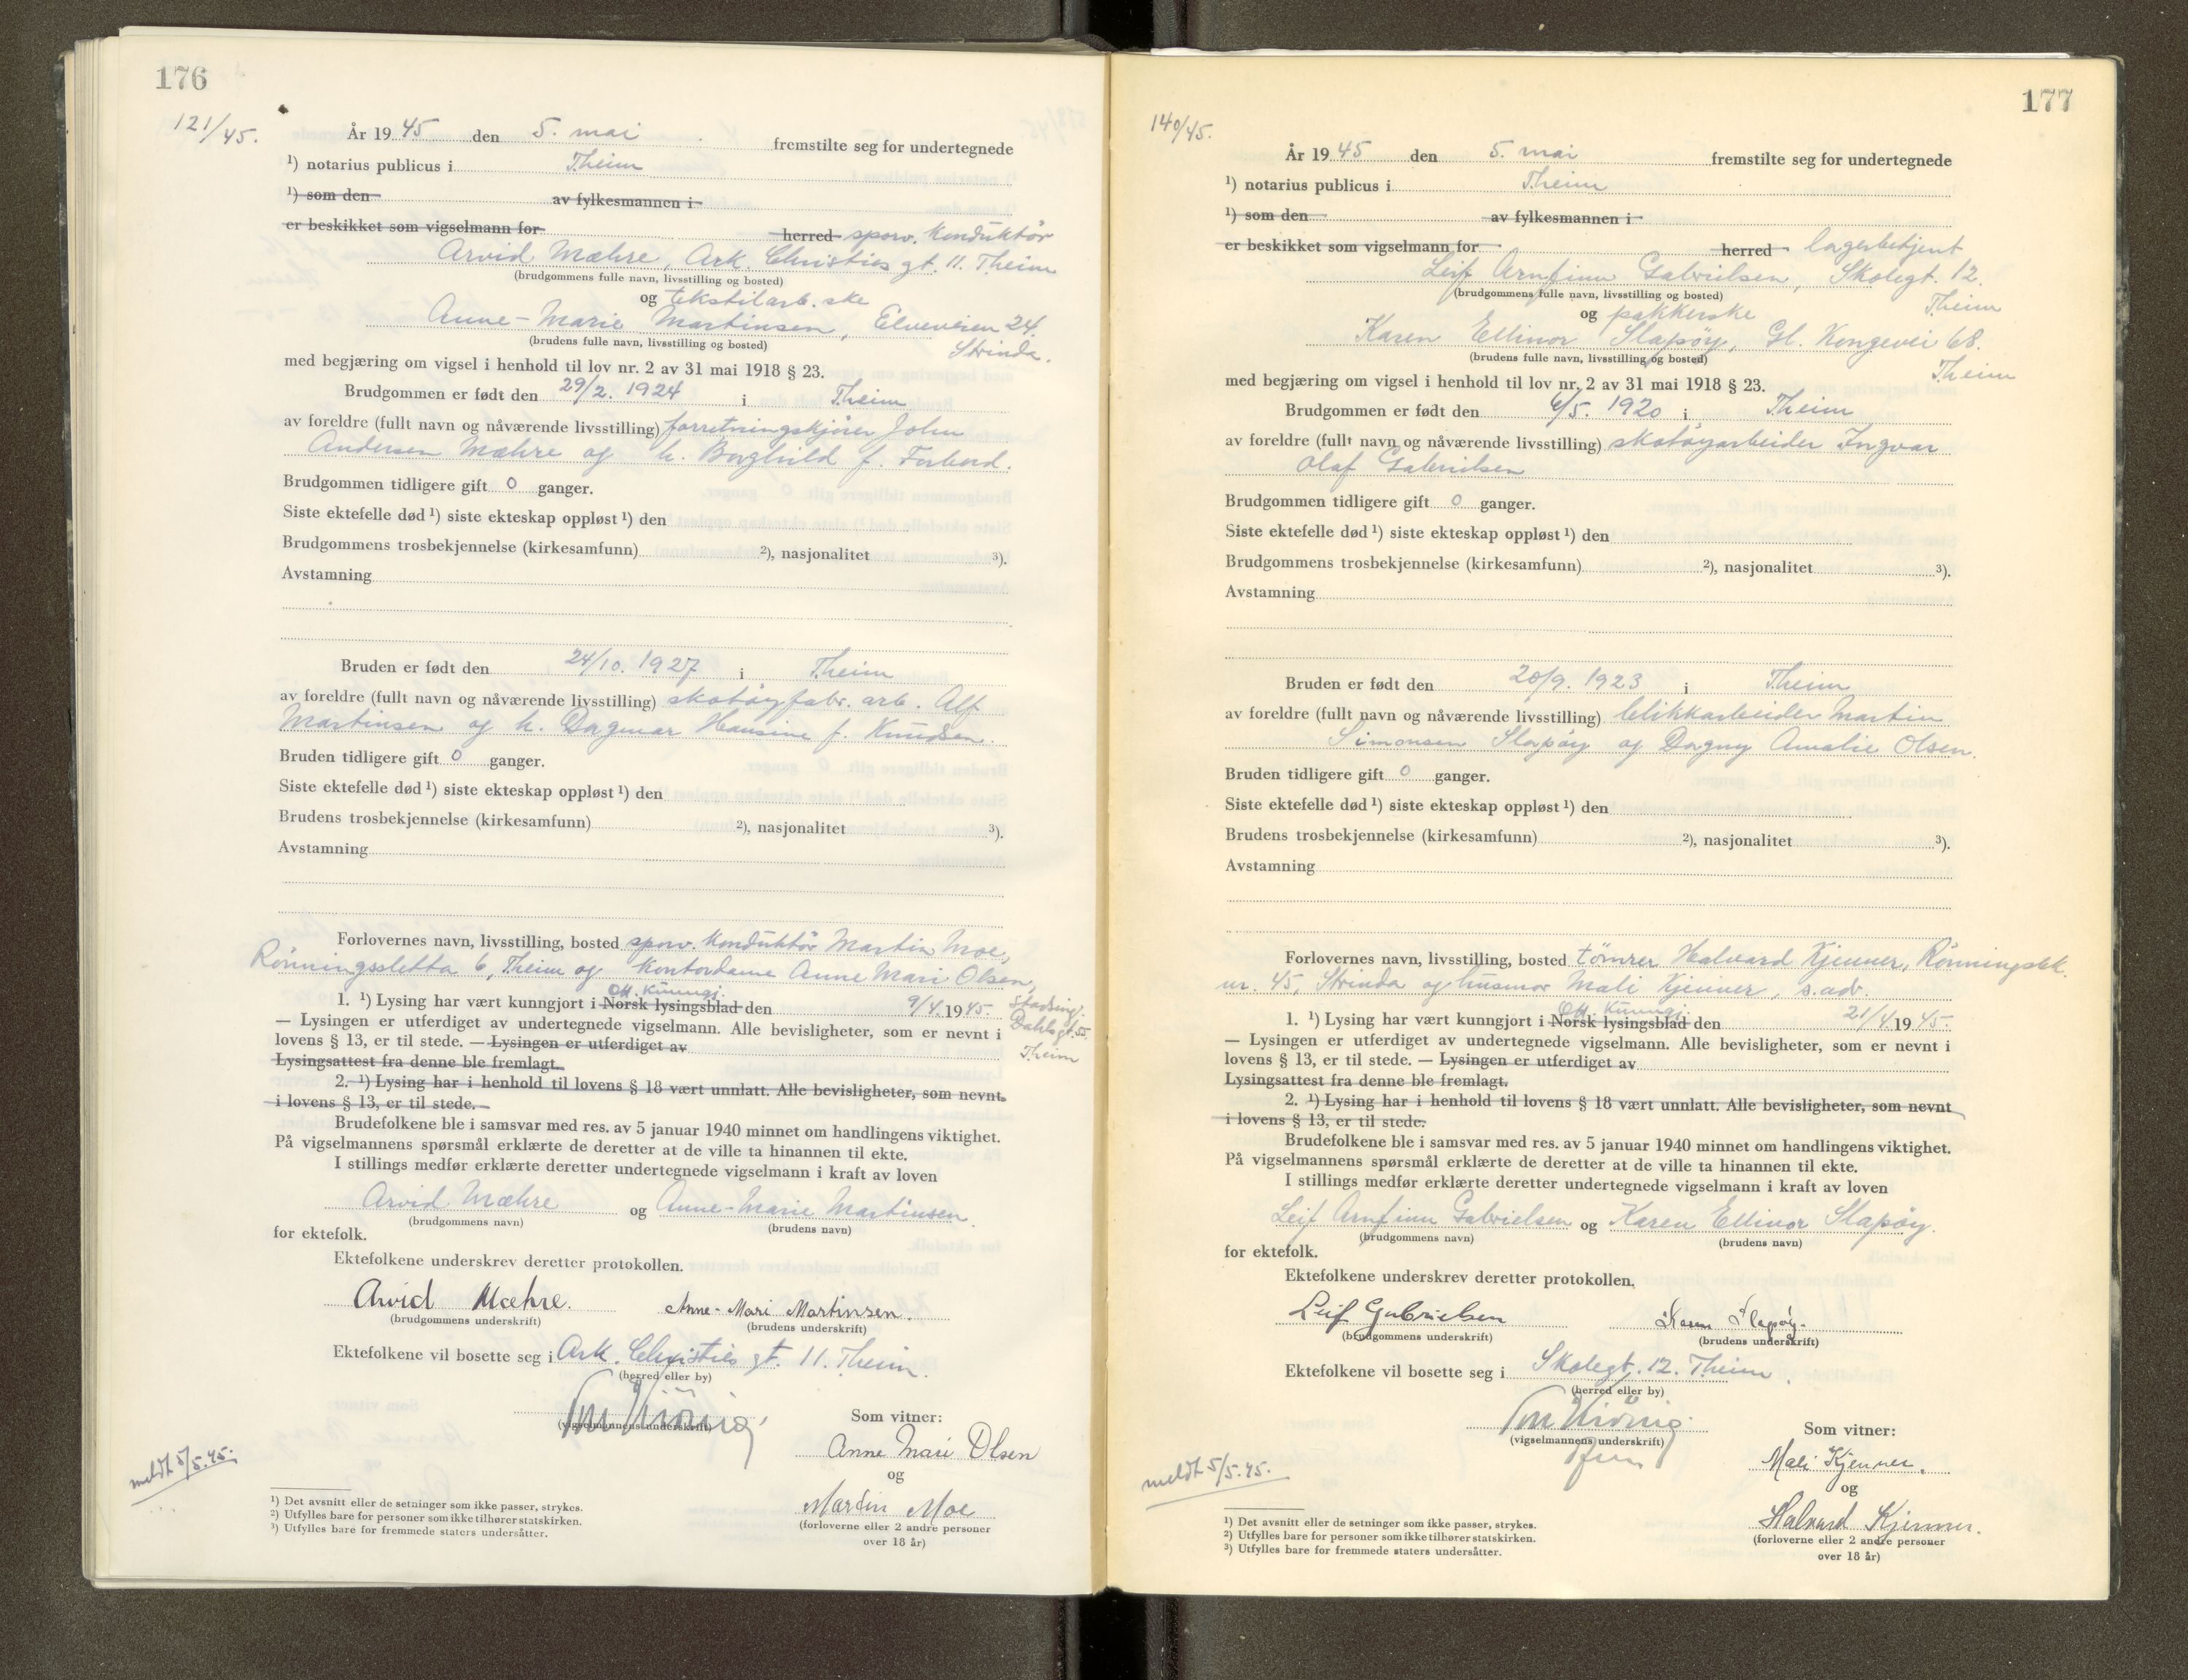 176
121/45.
År 1945 den 5. mai fremstilte seg for undertegnede
¹) notarius publicus i Theim
¹) som den av fylkesmannen i
er beskikket som vigselmann for herred sporv. konduktör
Arvid Mæhre, Ark. Christies gt. 11. Theim
(brudgommens fulle navn, livsstilling og bosted)
og tekstilarb.ske
Anne-Marie Martinsen, Elveveien 24.
(brudens fulle navn, livsstilling og bosted) Strinda.
med begjæring om vigsel i henhold til lov nr. 2 av 31 mai 1918 § 23.
Brudgommen er født den 29/2. 1924 i Theim
av foreldre (fullt navn og nåværende livsstilling) forretningskjörer John
Andersen Mæhre og h. Borghild f. Forbord.
Brudgommen tidligere gift 0 ganger.
Siste ektefelle død ¹) siste ekteskap oppløst ¹) den
Brudgommens trosbekjennelse (kirkesamfunn) ²), nasjonalitet ³).
Avstamning
Bruden er født den 24/10. 1927 i Theim
av foreldre (fullt navn og nåværende livsstilling) skotöyfabr. arb. Alf
Martinsen og h. Dagmar Hansine f. Knudsen.
Bruden tidligere gift 0 ganger.
Siste ektefelle død ¹) siste ekteskap oppløst ¹) den
Brudens trosbekjennelse (kirkesamfunn) ²), nasjonalitet ³).
Avstamning
Forlovernes navn, livsstilling, bosted sporv. konduktör Martin Moe,
Rönningssletta 6, Theim og kontordame Anne Mari Olsen,
Off. Kunngj.
1. ¹) Lysing har vært kunngjort i Norsk lysingsblad den 9/4. 1945. Stadsing.
— Lysingen er utferdiget av undertegnede vigselmann. Alle bevisligheter, som er nevnt i Dahls gt. 55
lovens § 13, er til stede. — Lysingen er utferdiget av Theim
Lysingsattest fra denne ble fremlagt.
2. ¹) Lysing har i henhold til lovens § 18 vært unnlatt. Alle bevisligheter, som nevnt
i lovens § 13, er til stede.
Brudefolkene ble i samsvar med res. av 5 januar 1940 minnet om handlingens viktighet.
På vigselmannens spørsmål erklærte de deretter at de ville ta hinannen til ekte.
I stillings medfør erklærte deretter undertegnede vigselmann i kraft av loven
Arvid Mæhre og Anne-Marie Martinsen.
(brudgommens navn) (brudens navn)
for ektefolk.
Ektefolkene underskrev deretter protokollen.
Arvid Mæhre. Anne-Mari Martinsen.
(brudgommens underskrift) (brudens underskrift)
Ektefolkene vil bosette seg i Ark. Christies gt. 11. Theim.
(herred eller by)
(vigselmannens underskrift) Som vitner:
Anne Mari Olsen
og
meldt 5/5.45.
Martin Moe
(forloverne eller 2 andre personer
over 18 år)
¹) Det avsnitt eller de setninger som ikke passer, strykes.
²) Utfylles bare for personer som ikke tilhører statskirken.
³) Utfylles bare for fremmede staters undersåtter.
177
140/45.
År 1945 den 5. mai fremstilte seg for undertegnede
¹) notarius publicus i Theim
¹) som den av fylkesmannen i
er beskikket som vigselmann for herred lagerbetjent
Leif Arnfinn Gabrielsen, Skolegt. 12.
(brudgommens fulle navn, livsstilling og bosted) Theim
og pakkerske
Karen Ellinor Slapöy, Gl. Kongevei 68.
(brudens fulle navn, livsstilling og bosted) Theim
med begjæring om vigsel i henhold til lov nr. 2 av 31 mai 1918 § 23.
Brudgommen er født den 6/5. 1920 i Theim
av foreldre (fullt navn og nåværende livsstilling) skotöyarbeider Ingvar
Olaf Gabrielsen
Brudgommen tidligere gift 0 ganger.
Siste ektefelle død ¹) siste ekteskap oppløst ¹) den
Brudgommens trosbekjennelse (kirkesamfunn) ²), nasjonalitet ³).
Avstamning
Bruden er født den 20/9. 1923 i Theim
av foreldre (fullt navn og nåværende livsstilling) blikkarbeider Martin
Simonsen Slapöy og Dagny Amalie Olsen.
Bruden tidligere gift 0 ganger.
Siste ektefelle død ¹) siste ekteskap oppløst ¹) den
Brudens trosbekjennelse (kirkesamfunn) ²), nasjonalitet ³).
Avstamning
Forlovernes navn, livsstilling, bosted tömrer Halvard Kjenner, Rönningslet.
nr. 45, Strinda og husmor Mali Kjenner, s. adr.
Off. Kunngj.
1. ¹) Lysing har vært kunngjort i Norsk lysingsblad den 21/4 1945.
— Lysingen er utferdiget av undertegnede vigselmann. Alle bevisligheter, som er nevnt i
lovens § 13, er til stede. — Lysingen er utferdiget av
Lysingsattest fra denne ble fremlagt.
2. ¹) Lysing har i henhold til lovens § 18 vært unnlatt. Alle bevisligheter, som nevnt
i lovens § 13, er til stede.
Brudefolkene ble i samsvar med res. av 5 januar 1940 minnet om handlingens viktighet.
På vigselmannens spørsmål erklærte de deretter at de ville ta hinannen til ekte.
I stillings medfør erklærte deretter undertegnede vigselmann i kraft av loven
Leif Arnfinn Gabrielsen og Karen Ellinor Slapöy.
(brudgommens navn) (brudens navn)
for ektefolk.
Ektefolkene underskrev deretter protokollen.
Leif Gabrielsen Karen Slapöy.
(brudgommens underskrift) (brudens underskrift)
Ektefolkene vil bosette seg i Skolegt. 12. Theim.
(herred eller by)
(vigselmannens underskrift) Som vitner:
Mali Kjenner.
og
meldt 5/5.45.
Halvard Kjenner.
(forloverne eller 2 andre personer
over 18 år)
¹) Det avsnitt eller de setninger som ikke passer, strykes.
²) Utfylles bare for personer som ikke tilhører statskirken.
³) Utfylles bare for fremmede staters undersåtter.